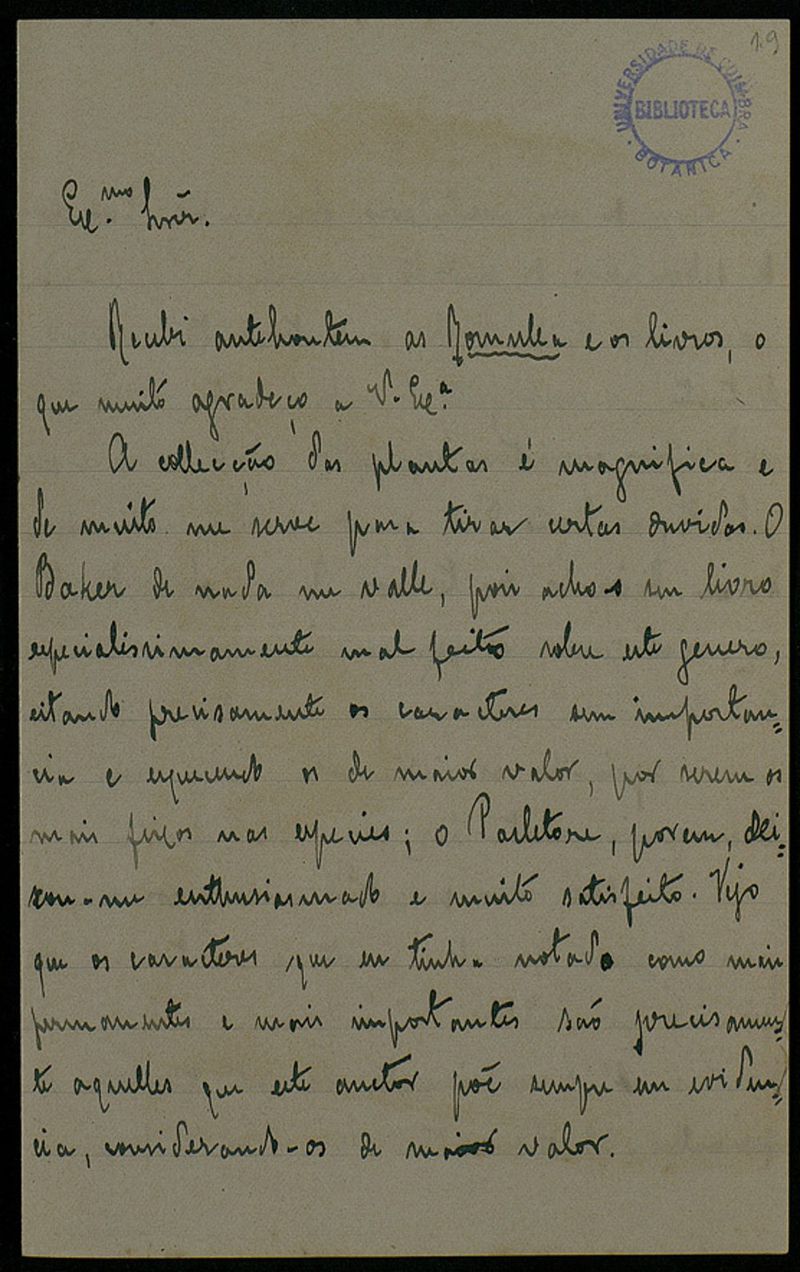 19
UNIVERSIDADE DE COIMBRA
BIBLIOTECA
BOTANICA
Ex.mo Snr.
Recebi antehontem as Romulea e os livros, o
que muito agradeço a V. Ex.a
A collecção das plantas é magnifica e
de muito me serve para tirar certas duvidas. O
Baker de nada me valle, pois acho-o um livro
especialissimamente mal feito sobre este genero,
citando precisamente os caracteres sem importan=
cia e esquecendo os de maior valor, por serem os
mais fixos nas especies; o Parlatore, porem, dei=
xou-me enthusiasmado e muito satisfeito. Vejo
que os caracteres que eu tinha notado como mais
permanentes e mais importantes são precisamen=
te aquelles que este auctor põe sempre em eviden=
cia, considerando-os de maior valor.